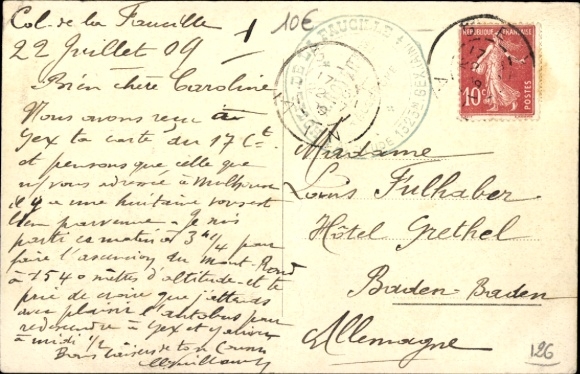 Col. de la Faucille
10€
22 Juillet 09
Bien chère Caroline
Nous avons reçu à
Gex ta carte du 17 Ct.
et pensons que celle que
n/ vous adressée à Mulhouse
il y a une huitaine vous est
bien parvenue. Je suis
parti ce matin à 3 h 1/4 pour
faire l'ascension du Mont-Rond
à 1540 mètres d'altitude et te
prie de croire que j'attends
avec plaisir l'autobus pour
redescendre à Gex et
à midi 1/2
Bons baisers de ton Cousin
RÉPUBLIQUE FRANÇAISE
10c
POSTES
Madame
Louis Fulhaber
Hôtel Grethel
Baden-Baden
Allemagne
126